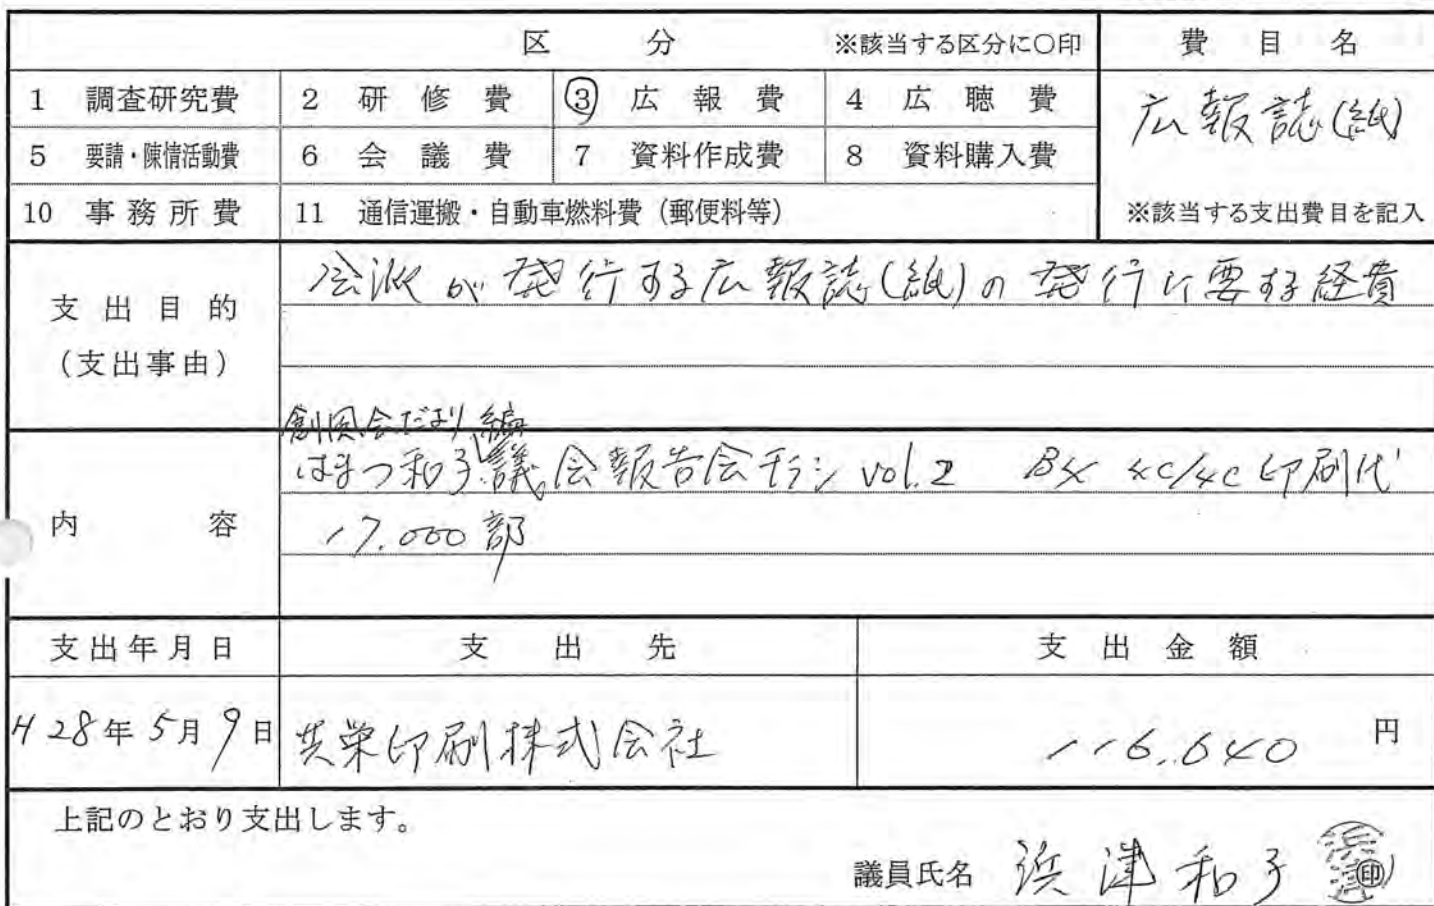 区分 ※該当する区分に○印 費目名
1 調査研究費 2 研修費 ③ 広報費 4 広聴費
広報誌(紙)
5 要請・陳情活動費 6 会議費 7 資料作成費 8 資料購入費
10 事務所費 11 通信運搬・自動車燃料費（郵便料等） ※該当する支出費目を記入
支出目的
（支出事由）
会派が発行する広報誌(紙)の発行に要する経費
創風会だより編
内容
はまつ和子議会報告会チラシ vol.2 B4 4c/4c 印刷代
17.000部
支出年月日 支出先 支出金額
H28年5月9日 共栄印刷株式会社 116.640円
上記のとおり支出します。
議員氏名 浜津和子 ㊞
浜津